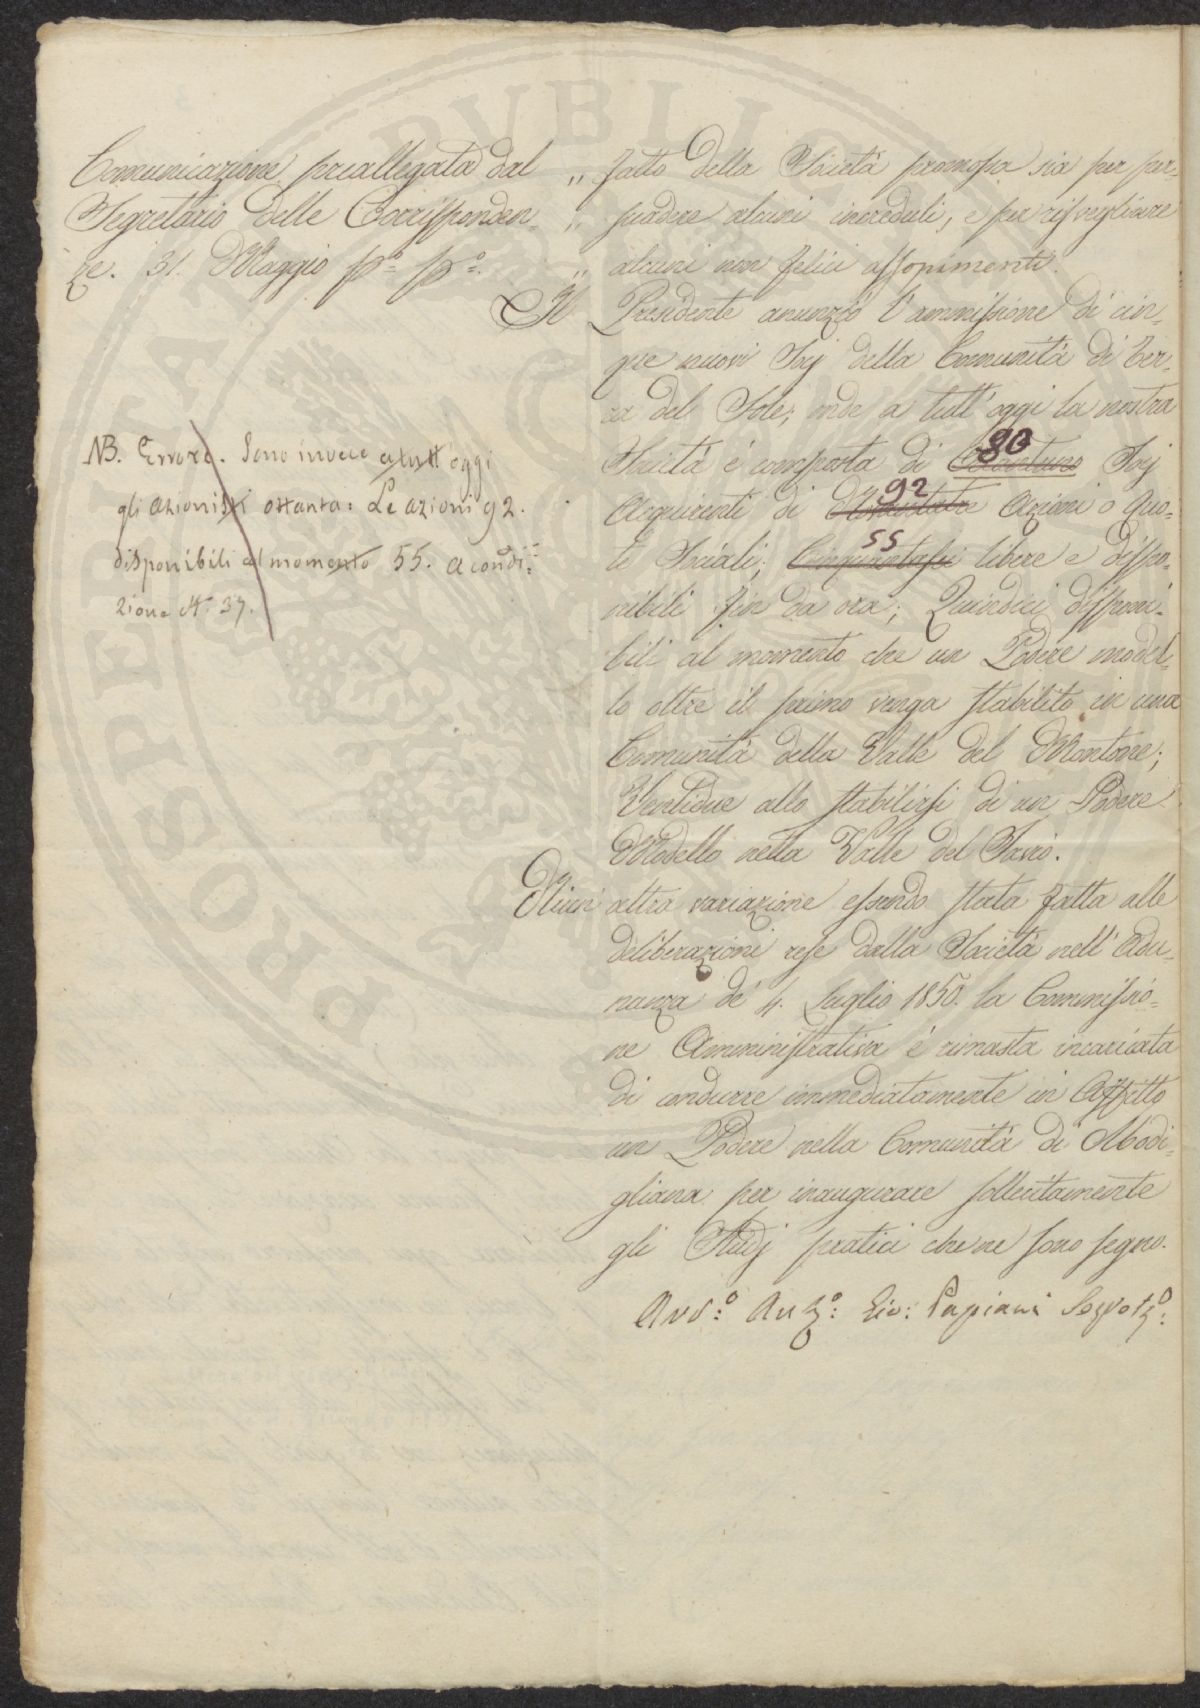 Comunicazione preallegata dal
Segretario delle Corrisponden-
ze. 31. Maggio p.º p.º
NB. Errore. Sono invece a tutt'oggi
gli azionisti ottanta: Le azioni 92.
disponibili al momento 55. a condi=
zione N. 37.
" fatto della Società promossa sia per per-
" suadere alcuni increduli, e per risvegliare
" alcuni non felici assopimenti.
Il Presidente anunziò l'ammissione di cin-
que nuovi Socj della Comunità di Ter-
ra del Sole; onde a tutt'oggi la nostra
Società é composta di 80 Socj
Acquirenti di 92 Azioni o Quo-
te Sociali; Cinquantasei 55 libere e dispo-
nibili fin da ora; Quindici disponi-
bili al momento che un Podere model-
lo oltre il primo venga stabilito in una
Comunità della Valle del Montone;
Ventidue allo stabilirsi di un Podere
Modello nella Valle del Savio.
Niun' altra variazione essendo stata fatta alle
deliberazioni rese dalla Società nell' Adu-
nanza de' 4. Luglio 1850. la Commissio-
ne Amministrativa é rimasta incaricata
di condurre immediatamente in Affitto
un Podere nella Comunità di Modi-
gliana per inaugurare sollecitamente
gli Studj pratici che ne sono segno.
Avv:º Ant:º Lio: Papiani Seg: